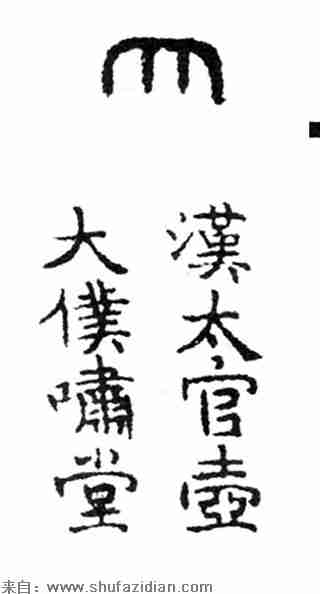 漢太官壺
大僕嘯堂
来自：www.shufazidian.com